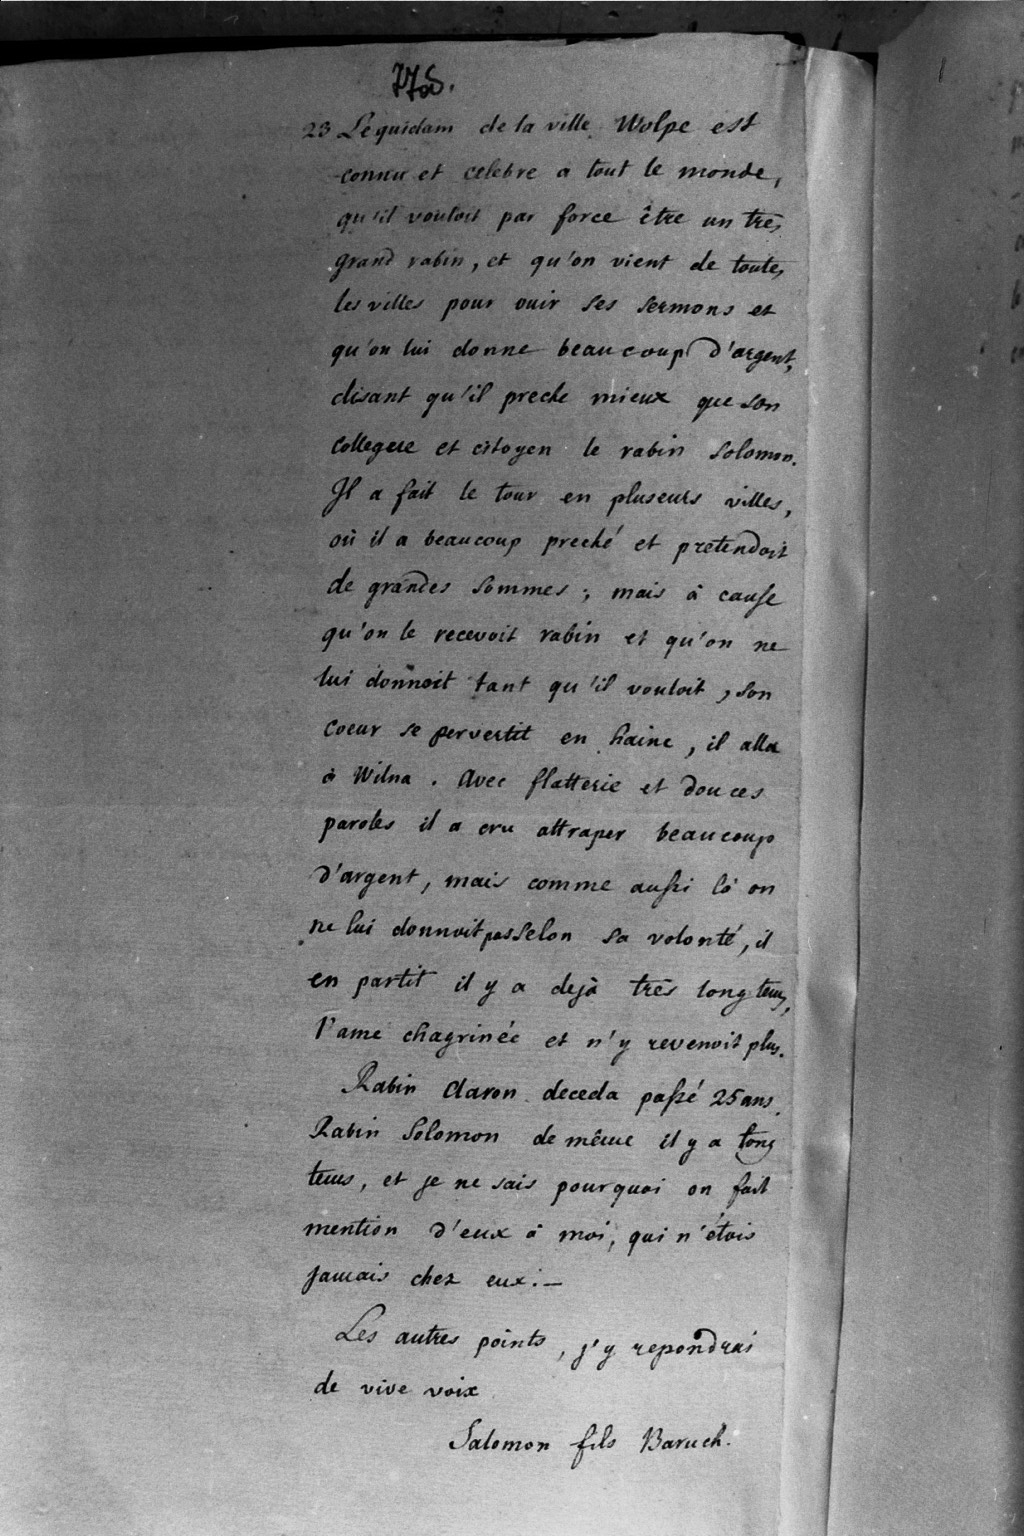 23 Le quidam de la ville Wolpe est
connu et celebre a tout le monde,
qu'il vouloit par force être un très
grand rabin, et qu'on vient de toutes
les villes pour ouir ses sermons et
qu'on lui donne beaucoup d'argent,
disant qu'il preche mieux que son
collegue et citoyen le rabin Solomon.
Il a fait le tour en pluseurs villes,
où il a beaucoup preché et pretendoit
de grandes sommes; mais à cause
qu'on le recevoit rabin et qu'on ne
lui donnoit tant qu'il vouloit, son
coeur se pervertit en haine, il alla
à Wilna. Avec flatterie et douces
paroles il a cru attraper beaucoup
d'argent, mais comme aussi là on
ne lui donnoit pas selon sa volonté, il
en partit il y a dejà très longtems,
l'ame chagrinée et n'y revenoit plus.
Rabin Aaron deceda passé 25 ans.
Rabin Solomon de même il y a long
tems, et je ne sais pourquoi on fait
mention d'eux à moi, qui n'étois
jamais chez eux.—
Les autres points, j'y repondrai
de vive voix
Salomon fils Baruch.